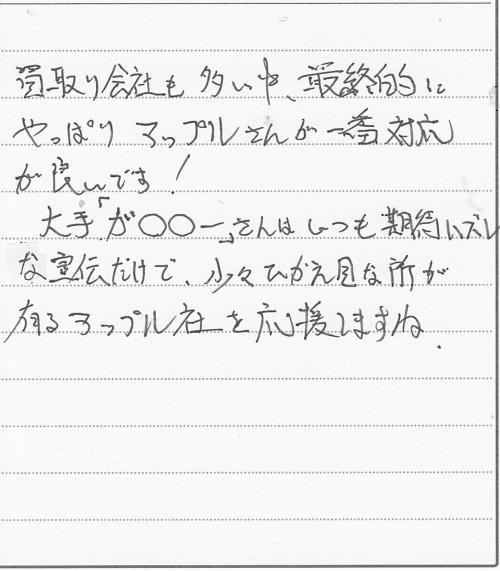 買取り会社も多い中、最終的に
やっぱりアップルさんが一番対応
が良いです!
大手「が〇〇ー」さんはいつも期待ハズレ
な宣伝だけで、少々ひかえ目な所が
有るアップル社を応援しますね.